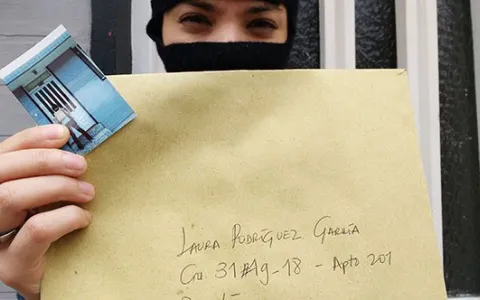 LAURA RODRÍGUEZ GARCÍA
Cra 31#19-18 - Apto 201